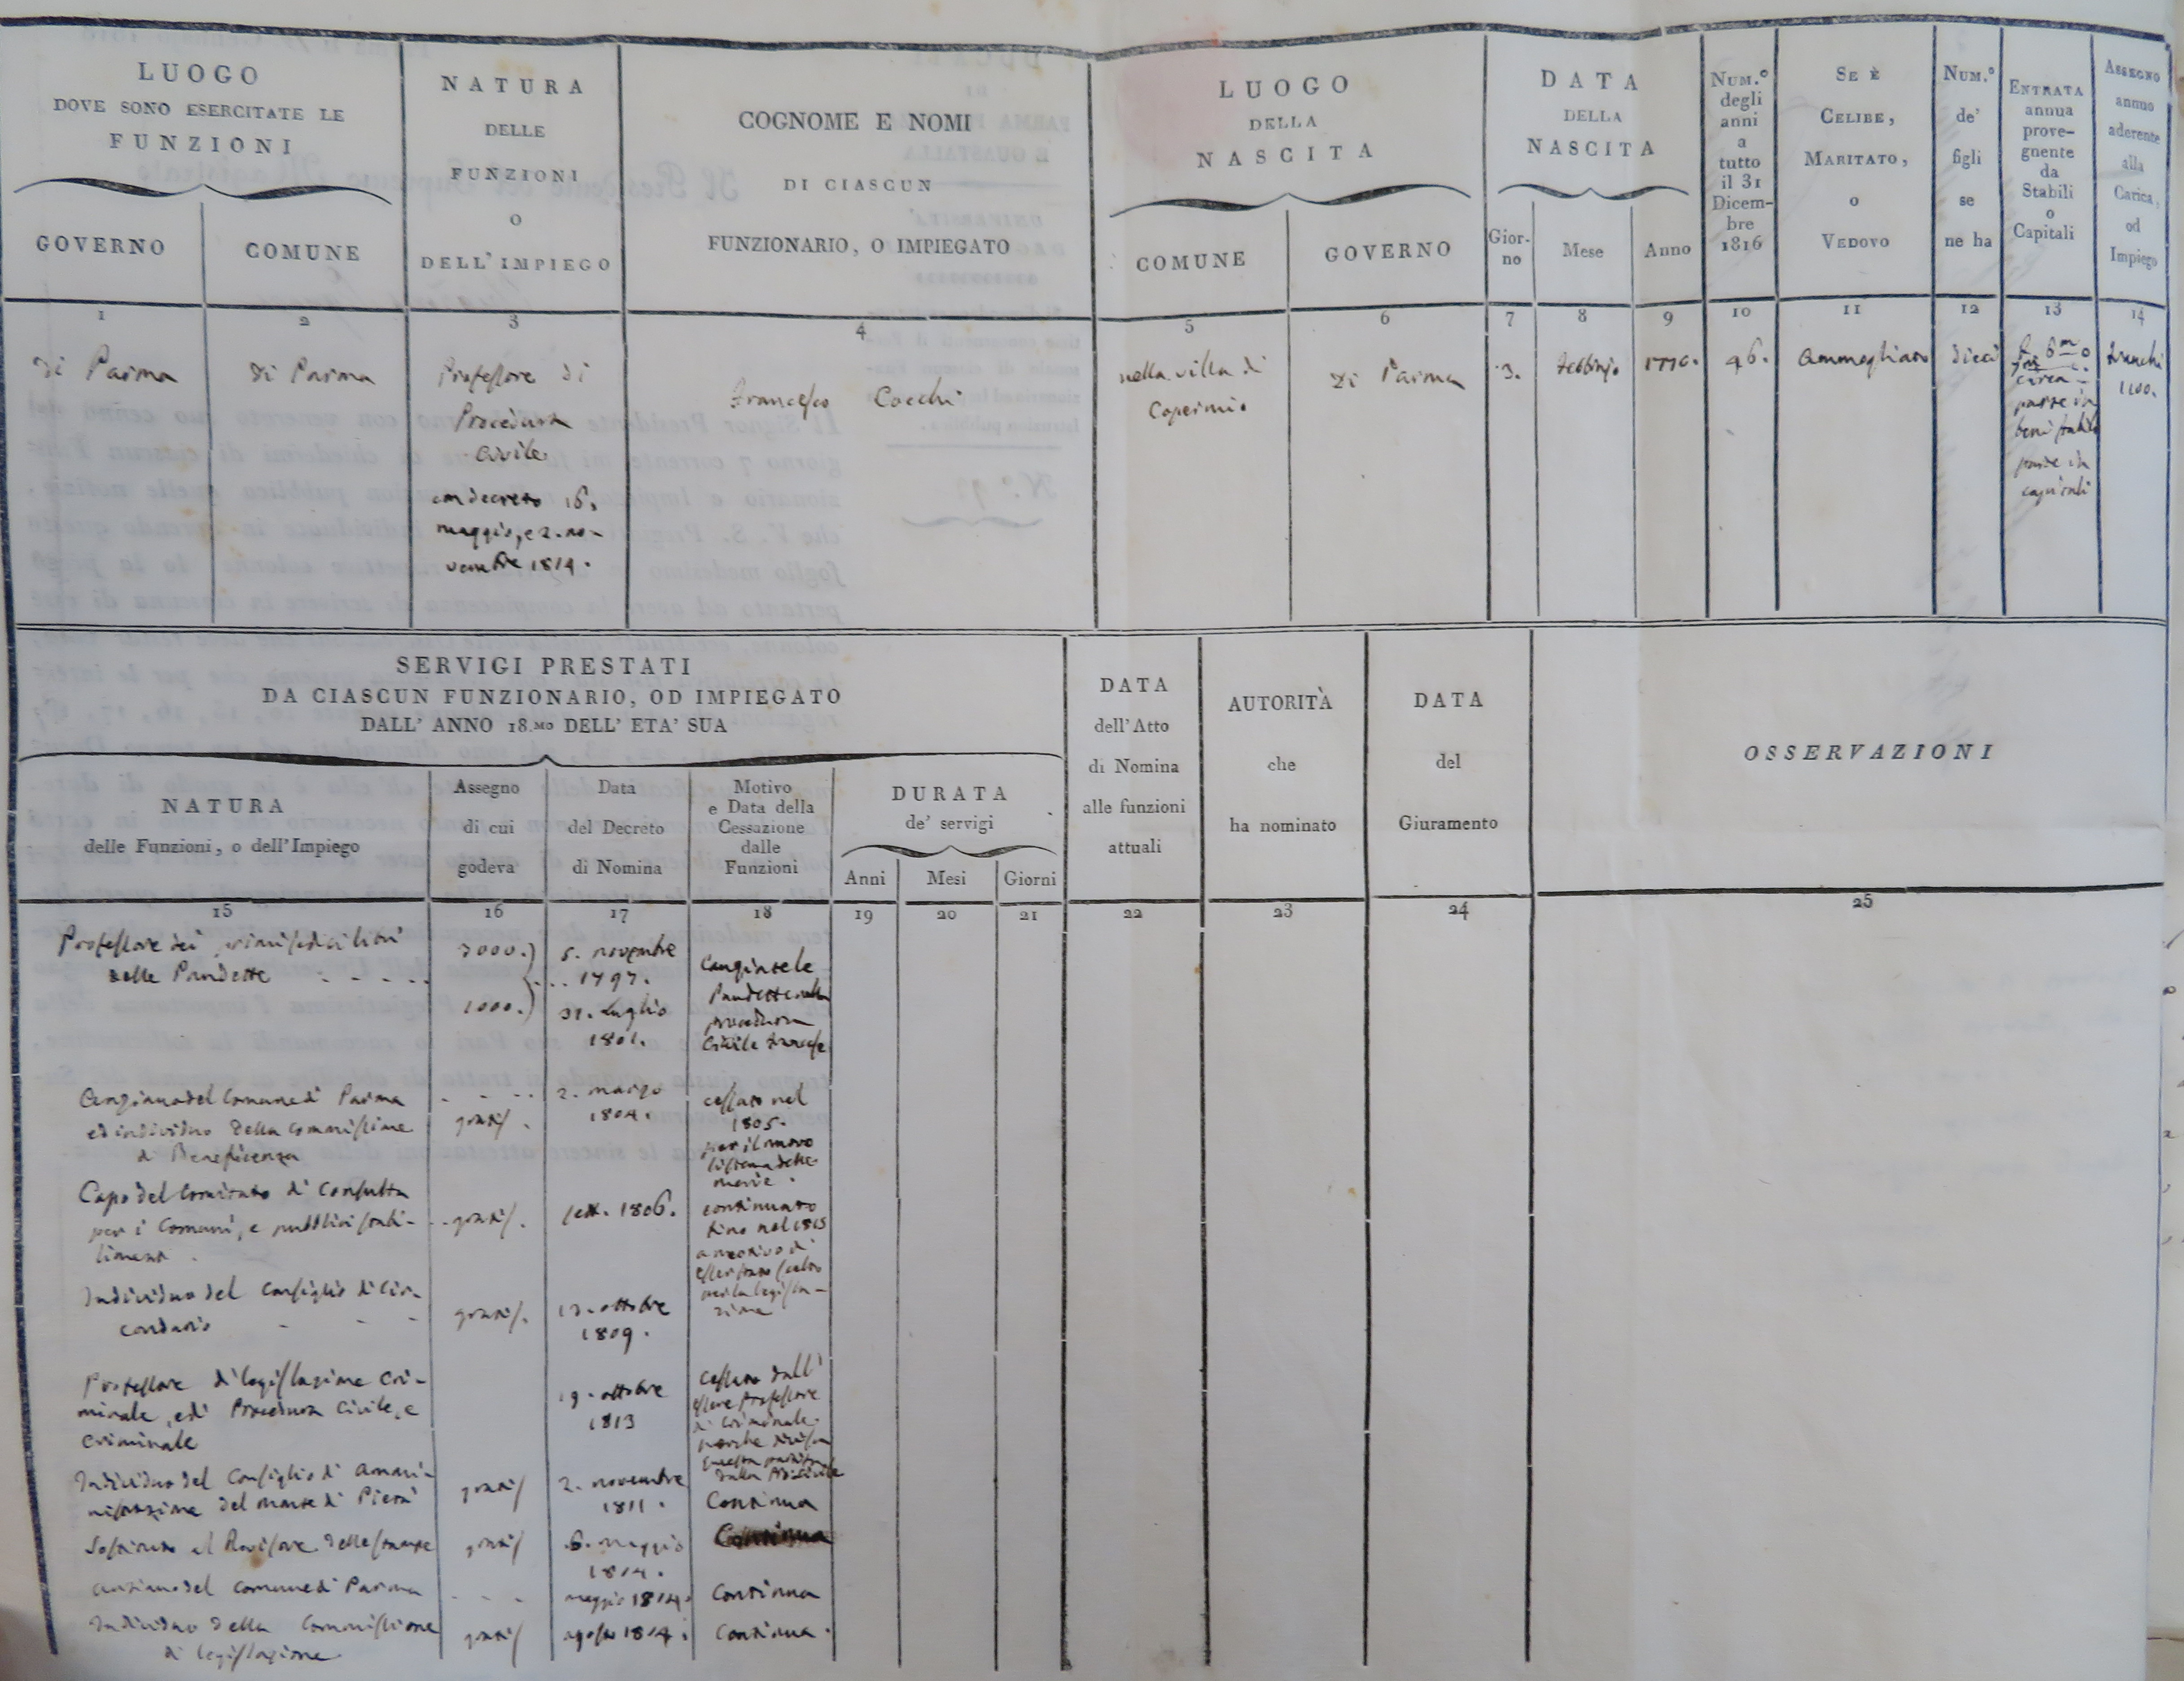 LUOGO
DOVE SONO ESERCITATE LE
FUNZIONI
GOVERNO
COMUNE
NATURA
DELLE
FUNZIONI
O
DELL'IMPIEGO
COGNOME E NOMI
DI CIASCUN
FUNZIONARIO, O IMPIEGATO
LUOGO
DELLA
NASCITA
COMUNE
GOVERNO
DATA
DELLA
NASCITA
Gior-
no
Mese
Anno
NUM.º
degli
anni
a
tutto
il 31
Dicem-
bre
1816
SE È
CELIBE,
MARITATO,
o
VEDOVO
NUM.º
de'
figli
se
ne ha
ENTRATA
annua
prove-
gnente
da
Stabili
o
Capitali
ASSEGNO
annuo
aderente
alla
Carica,
od
Impiego
1
2
3
4
5
6
7
8
9
10
11
12
13
14
di Parma
di Parma
Professore di
Procedura
Civile
con decreto 16.
maggio, e 2. no-
vembre 1814.
Francesco Cocchi
nella villa di
Copermio
di Parma
3.
Febbrajo
1770.
46.
Ammogliato
dieci
circa
parte in
beni stabili
parte in
capitali
franchi
1100.
SERVIGI PRESTATI
DA CIASCUN FUNZIONARIO, OD IMPIEGATO
DALL' ANNO 18.MO DELL' ETA' SUA
NATURA
delle Funzioni, o dell'Impiego
Assegno
di cui
godeva
Data
del Decreto
di Nomina
Motivo
e Data della
Cessazione
dalle
Funzioni
DURATA
de' servigi
Anni
Mesi
Giorni
DATA
dell'Atto
di Nomina
alle funzioni
attuali
AUTORITÀ
che
ha nominato
DATA
del
Giuramento
OSSERVAZIONI
15
16
17
18
19
20
21
22
23
24
25
Professore dei primi sedici libri
delle Pandette
1000.
5. novembre
1797.
31. Luglio
1801.
Cangiate le
Pandette nella
procedura
Civile francese
Anziano del Comune di Parma
ed individuo della Commissione
di Beneficenza
gratis.
2. marzo
1804.
cessato nel
1805.
per il nuovo
sistema delle
merie.
Capo del Comitato di Consulta
per i Comuni, e pubblici stabi-
limenti.
gratis.
sett. 1806.
continuato
fino nel 1815
a motivo di
Individuo del Consiglio di Cir-
condario
gratis.
13. ottobre
1809.
Professore di legislazione Cri-
minale, e di Procedura Civile, e
Criminale
19. ottobre
1813
Cessato dall'
essere Professore
di Criminale
Individuo del Consiglio di Ammi-
nistrazione del Monte di Pietà
gratis
2. novembre
1811.
Continua
Sostituto al Revisore delle stampe
gratis
6. maggio
1814.
Continua
Anziano del Comune di Parma
maggio 1814.
Continua
Individuo della Commissione
di legislazione
gratis
agosto 1814.
Continua.